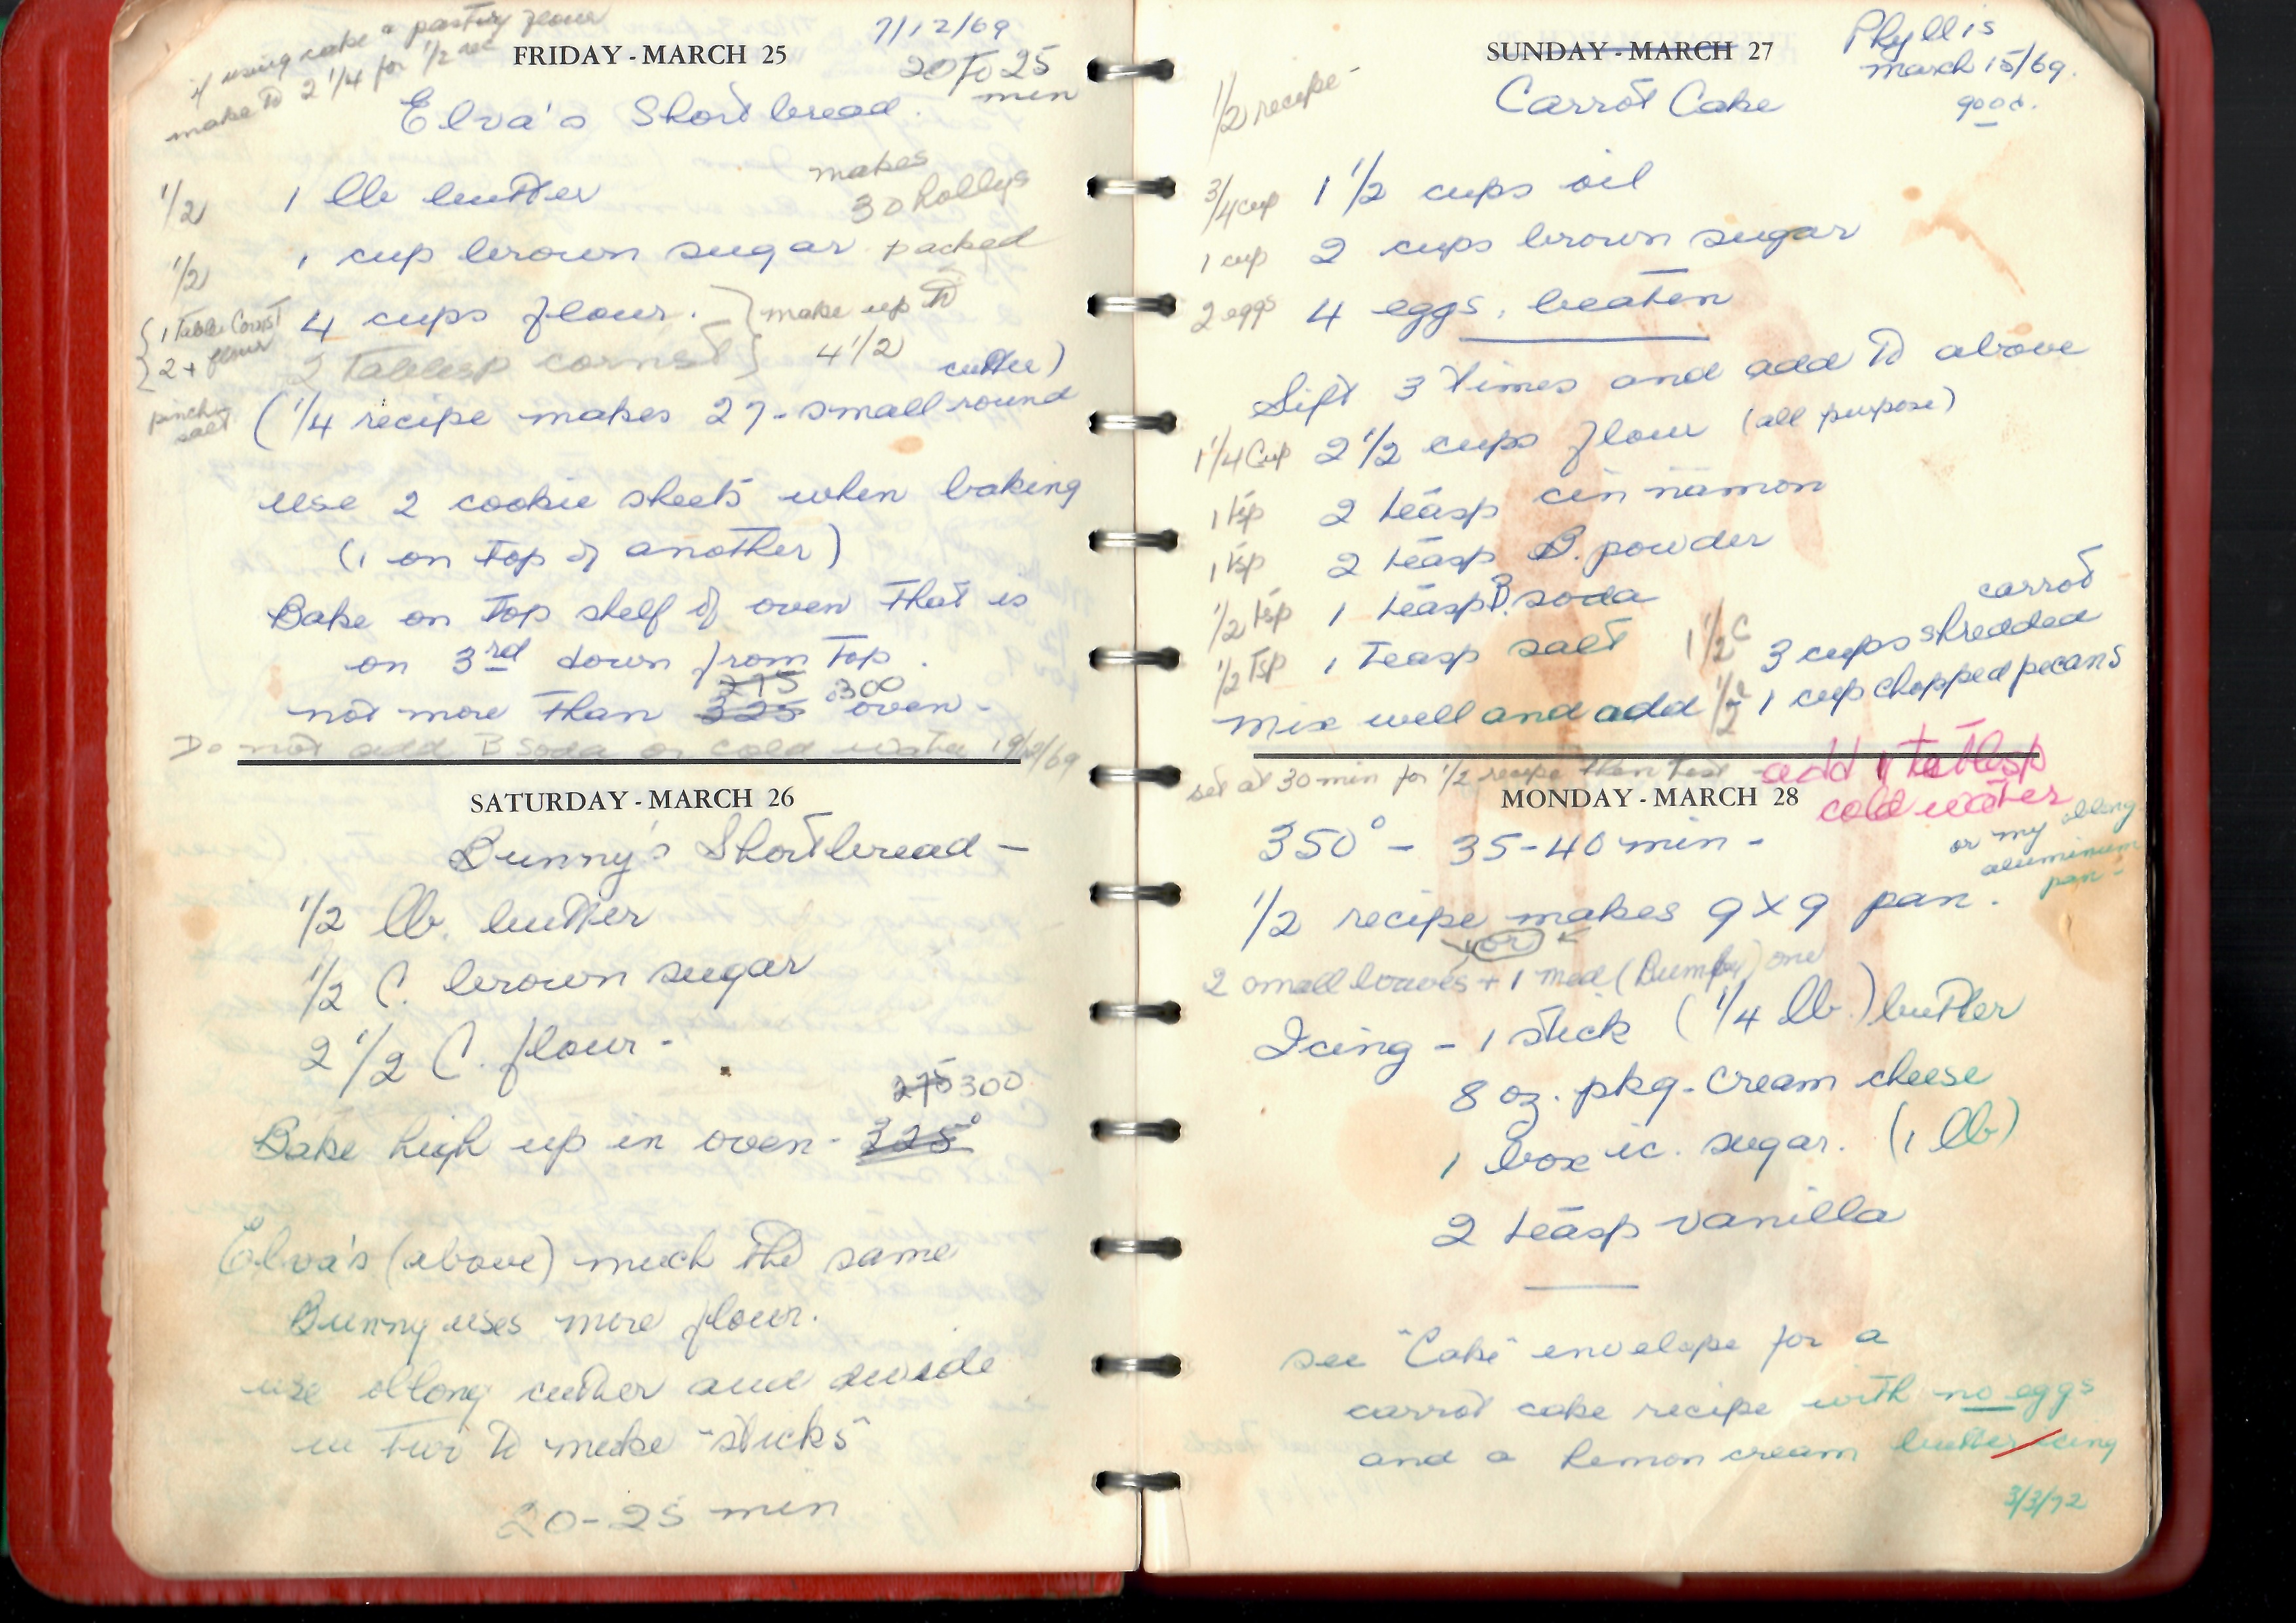 if using cake & pastry flour
make to 2 1/4 for 1/2 rec
FRIDAY - MARCH 25
7/12/69
20 To 25
min
Elva's Shortbread.
makes
30 hollys
1/2 1 lb butter
1/2 1 cup brown sugar packed
{ 1 Table Cornst 4 cups flour. } make up to
} 2 + flour 2 Tablesp cornst } 4 1/2
pinch salt
(1/4 recipe makes 27 - small round cutter)
use 2 cookie sheets when baking
(1 on top of another)
Bake on top shelf of oven that is
on 3rd down from top.
275 300
not more than 325° oven -
Do not add B Soda or cold water 19/12/69
SATURDAY - MARCH 26
Bunny's Shortbread -
1/2 lb. butter
1/2 C. brown sugar
2 1/2 C. flour -
275 300
Bake high up in oven - 325°
Elva's (above) much the same
Bunny uses more flour.
use oblong cutter and divide
in two to make "sticks"
20-25 min
SUNDAY - MARCH 27
Phyllis
march 15/69.
good.
1/2 recipe -
Carrot Cake
3/4 cup 1 1/2 cups oil
1 cup 2 cups brown sugar
2 eggs 4 eggs, beaten
Sift 3 times and add to above
1 1/4 Cup 2 1/2 cups flour (all purpose)
1 tsp 2 teasp cinnamon
1 tsp 2 teasp B. powder
1/2 tsp 1 teasp B. soda
1/2 Tsp 1 Teasp salt
carrot
1 1/2 C 3 cups shredded
Mix well and add 1/2 c - 1 cup chopped pecans
set at 30 min for 1/2 recipe then test -
add 1 tablesp
cold water
MONDAY - MARCH 28
350° - 35-40 min -
or my oblong
aluminum
pan -
1/2 recipe makes 9 x 9 pan.
or
2 small loaves + 1 med (Bumpy) one
Icing - 1 stick (1/4 lb.) butter
8 oz. pkg. cream cheese
1 box ic. sugar. (1 lb)
2 teasp vanilla
see "Cake" envelope for a
carrot cake recipe with no eggs
and a lemon cream butter icing
3/3/72